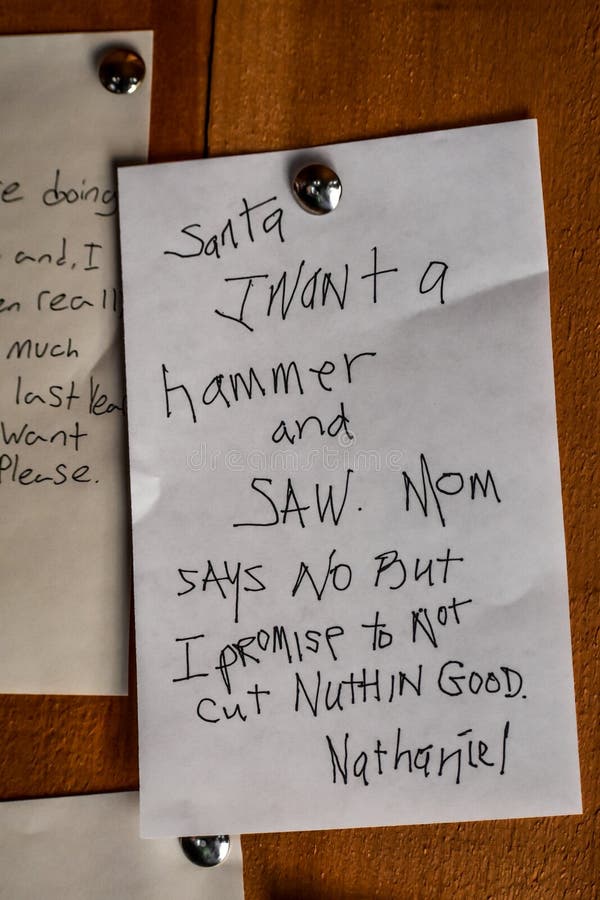 e doing
and, I
en reall
much
last Yea
Want
Please.
Santa
I WANT a
hammer
and
SAW. MOM
SAYS NO BUT
I PROMISE to Not
cut NUTHIN GOOD.
Nathaniel
dreamstime